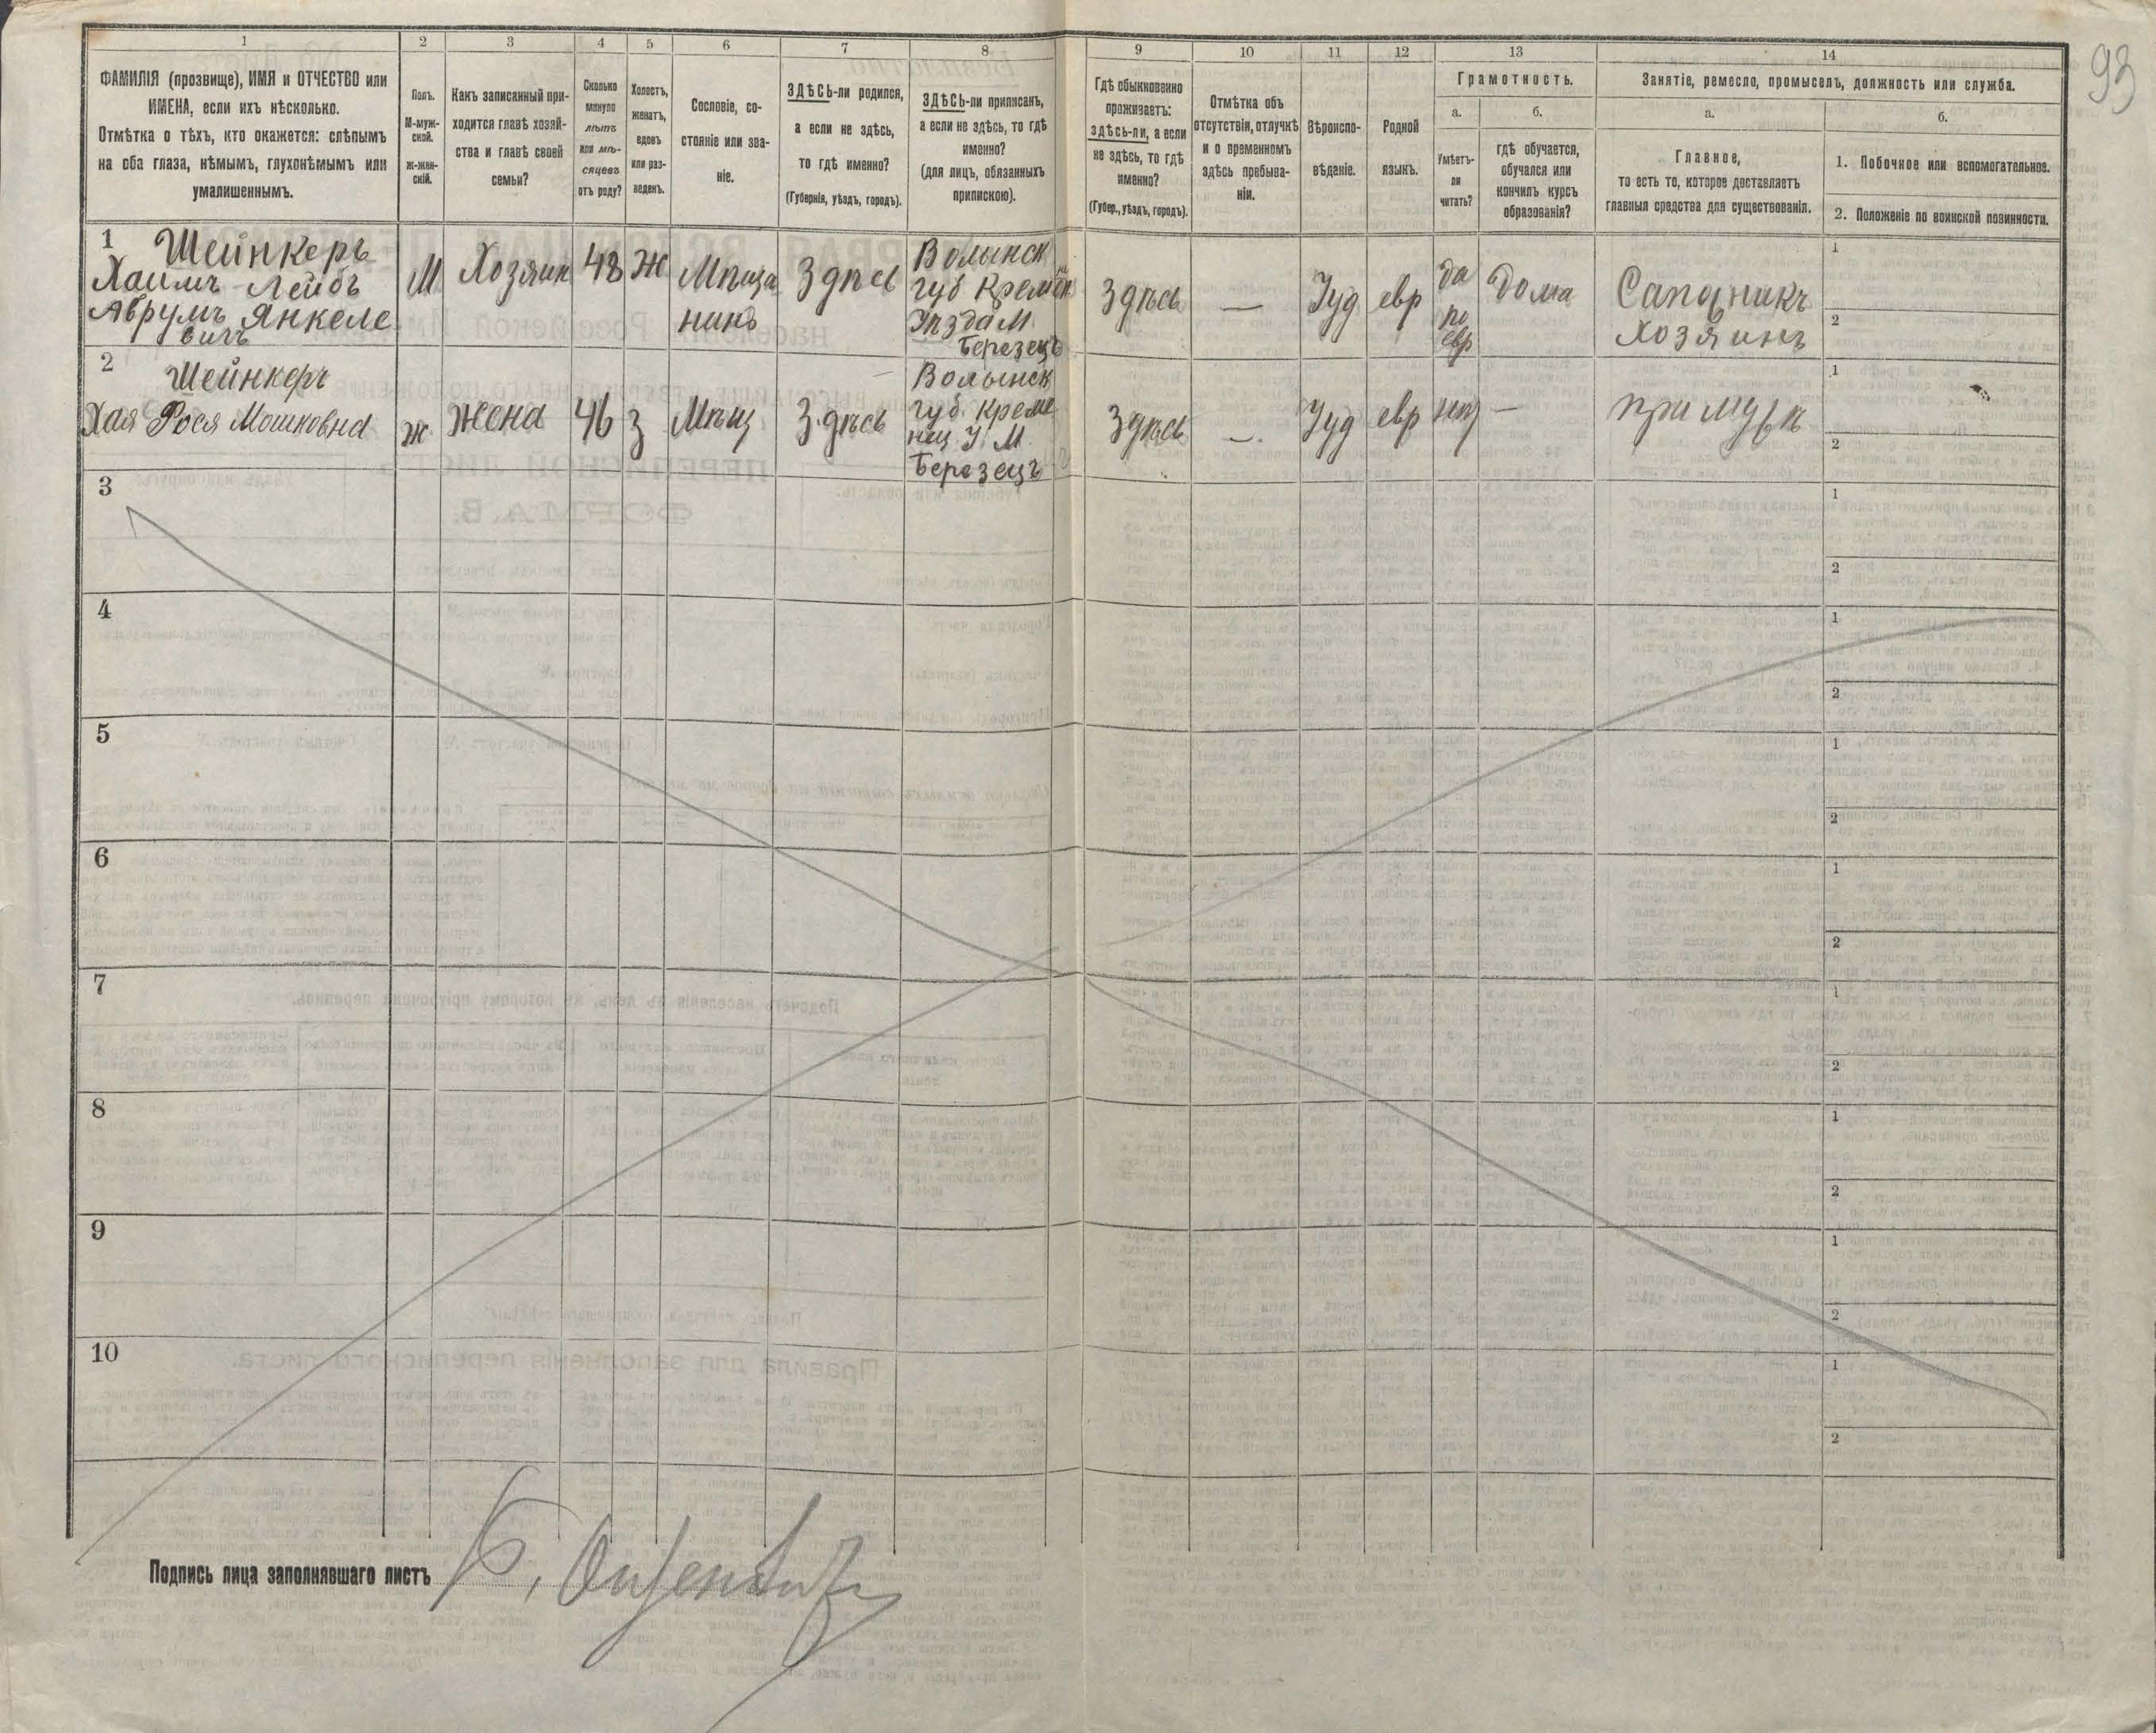 93
1
2
3
4
5
6
7
8
9
10
11
12
13
14
ФАМИЛІЯ (прозвище), ИМЯ и ОТЧЕСТВО или
ИМЕНА, если ихъ нѣсколько.
Отмѣтка о тѣхъ, кто окажется: слѣпымъ
на оба глаза, нѣмымъ, глухонѣмымъ или
умалишеннымъ.
Полъ.
М-муж-
ской.
ж-жен-
скій.
Какъ записанный при-
ходится главѣ хозяй-
ства и главѣ своей
семьи?
Сколько
минуло
лѣтъ
или мѣ-
сяцевъ
отъ роду?
Холостъ,
женатъ,
вдовъ
или раз-
веденъ.
Сословіе, со-
стояніе или зва-
ніе.
ЗДѢСЬ-ли родился,
а если не здѣсь,
то гдѣ именно?
(Губернія, уѣздъ, городъ).
ЗДѢСЬ-ли приписанъ,
а если не здѣсь, то гдѣ
именно?
(для лицъ, обязанныхъ
припискою).
Гдѣ обыкновенно
проживаетъ:
здѣсь-ли, а если
не здѣсь, то гдѣ
именно?
(Губер., уѣздъ, городъ).
Отмѣтка объ
отсутствіи, отлучкѣ
и о временномъ
здѣсь пребыва-
ніи.
Вѣроиспо-
вѣданіе.
Родной
языкъ.
Грамотность.
а.
Умѣетъ-
ли
читать?
б.
гдѣ обучается,
обучался или
кончилъ курсъ
образованія?
Занятіе, ремесло, промыселъ, должность или служба.
а.
Главное,
то есть то, которое доставляетъ
главныя средства для существованія.
б.
1. Побочное или вспомогательное.
2. Положеніе по воинской повинности.
1
Шейнкеръ
Хаимъ Лейбъ
Аврумъ Янкеле
вичъ
М
Хозяин
48
Ж
Мѣща
нинъ
Здѣсь
Волынск
губ Кремен
Уѣзда М.
Березецъ
Здѣсь
—
Іуд
евр
да
по
евр
Дома
Сапожникъ
Хозяинъ
1
2
2
Шейнкеръ
Хая Рося Мошковна
ж
жена
46
З
Мѣщ
Здѣсь
Волынск
губ. Креме
нец. У. М.
Березецъ
Здѣсь
—
Іуд
евр
нѣт
—
при мужѣ
1
2
3
1
2
4
1
2
5
1
2
6
1
2
7
1
2
8
1
2
9
1
2
10
1
2
Подпись лица заполнявшаго листъ